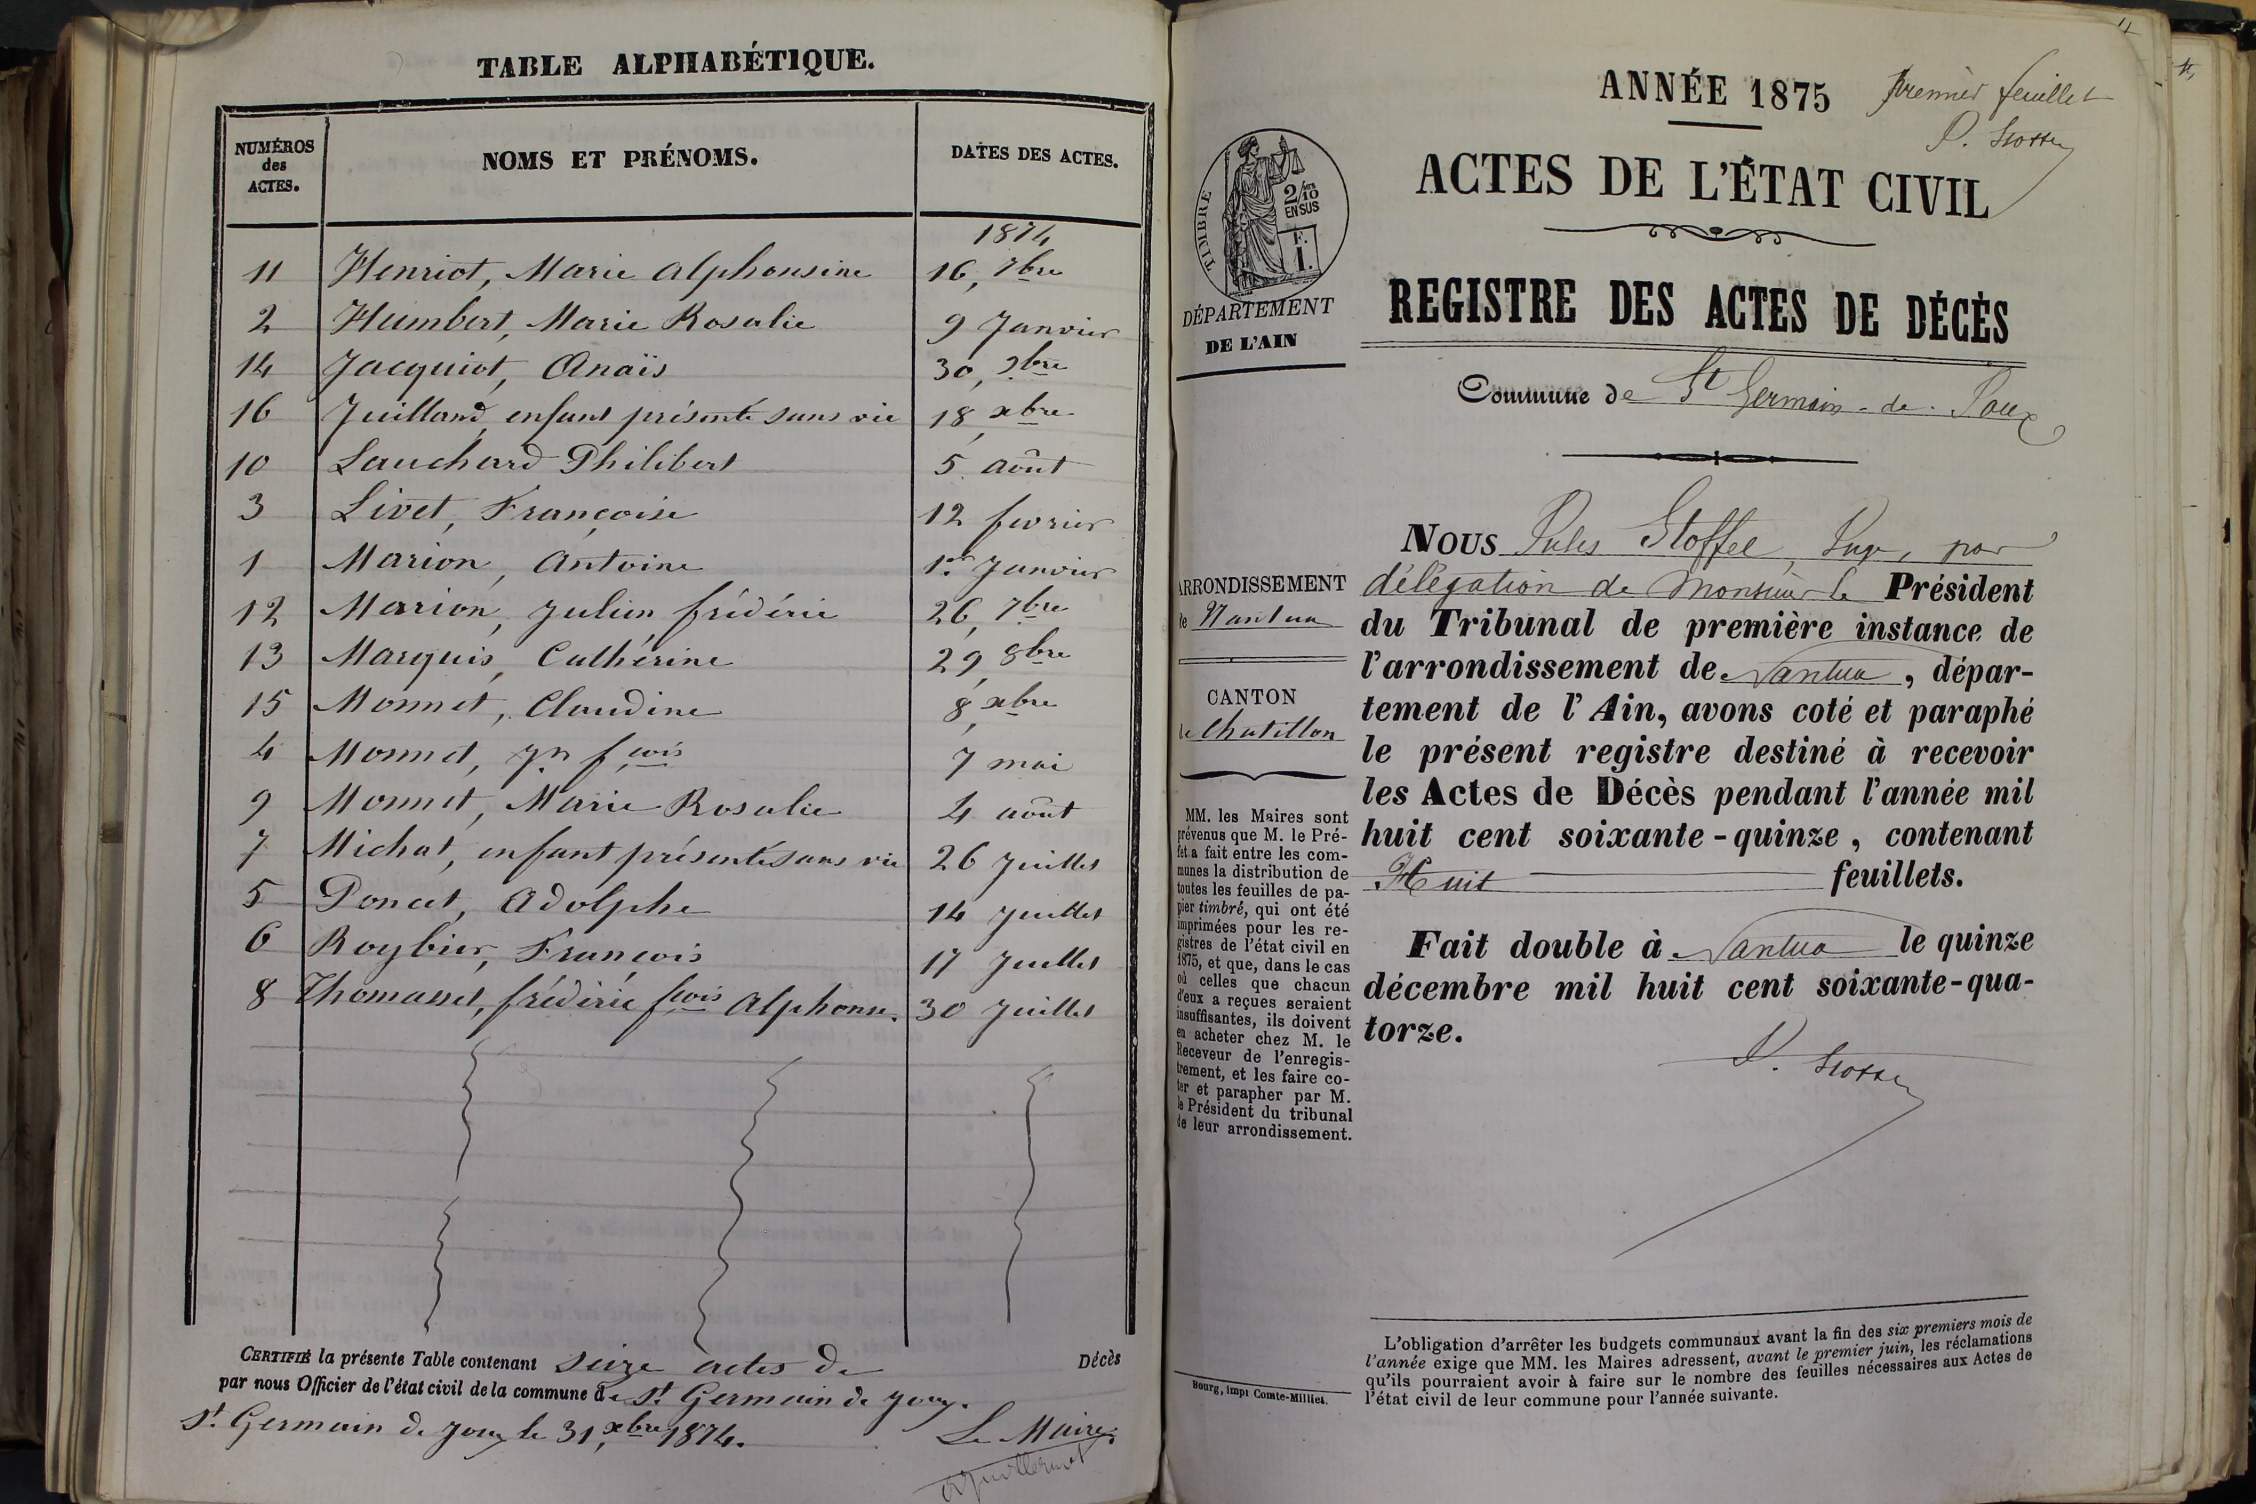 TABLE ALPHABÉTIQUE.
NUMÉROS des ACTES. NOMS ET PRÉNOMS. DATES DES ACTES.
1874
11 Henriot, Marie Alphonsine 16, 7bre
2 Humbert, Marie Rosalie 9 Janvier
14 Jacquiot, Anaïs 30, 9bre
16 Juilland, enfant présenté sans vie 18, xbre
10 Lauchard Philibert 5 août
3 Livet, Françoise 12 fevrier
1 Marion, Antoine 1er Janvier
12 Marion, Julien frédéric 26, 7bre
13 Marquis, Cathérine 29, 8bre
15 Monnet, Claudine 8, xbre
4 Monnet, Jn fçois 7 mai
9 Monnet, Marie Rosalie 4 août
7 Michat, enfant présenté sans vie 26 Juillet
5 Poncet, Adolphe 14 Juillet
6 Roybier, François 17 Juillet
8 Thomasset, frédéric fçois Alphonse. 30 Juillet
CERTIFIÉ la présente Table contenant seize actes de Décès
par nous Officier de l'état civil de la commune de St Germain de Joux.
St Germain de Joux le 31, xbre 1874.
Le Maire,
4
ANNÉE 1875
premier feuillet
ACTES DE L'ÉTAT CIVIL
TIMBRE
2/10
EN SUS
F.
1.
DÉPARTEMENT
DE L'AIN
REGISTRE DES ACTES DE DÉCÈS
Commune de St Germain-de-Joux
ARRONDISSEMENT
de Nantua
CANTON
de Chatillon
MM. les Maires sont
prévenus que M. le Pré-
fet a fait entre les com-
munes la distribution de
toutes les feuilles de pa-
pier timbré, qui ont été
imprimées pour les re-
gistres de l'état civil en
1875, et que, dans le cas
où celles que chacun
d'eux a reçues seraient
insuffisantes, ils doivent
en acheter chez M. le
Receveur de l'enregis-
trement, et les faire co-
ter et parapher par M.
le Président du tribunal
de leur arrondissement.
Bourg, impr Comte-Milliet.
NOUS Jules Stoffel, Juge, par
délégation de Monsieur le Président
du Tribunal de première instance de
l'arrondissement de Nantua, dépar-
tement de l'Ain, avons coté et paraphé
le présent registre destiné à recevoir
les Actes de Décès pendant l'année mil
huit cent soixante-quinze, contenant
Huit feuillets.
Fait double à Nantua le quinze
décembre mil huit cent soixante-qua-
torze.
L'obligation d'arrêter les budgets communaux avant la fin des six premiers mois de
l'année exige que MM. les Maires adressent, avant le premier juin, les réclamations
qu'ils pourraient avoir à faire sur le nombre des feuilles nécessaires aux Actes de
l'état civil de leur commune pour l'année suivante.